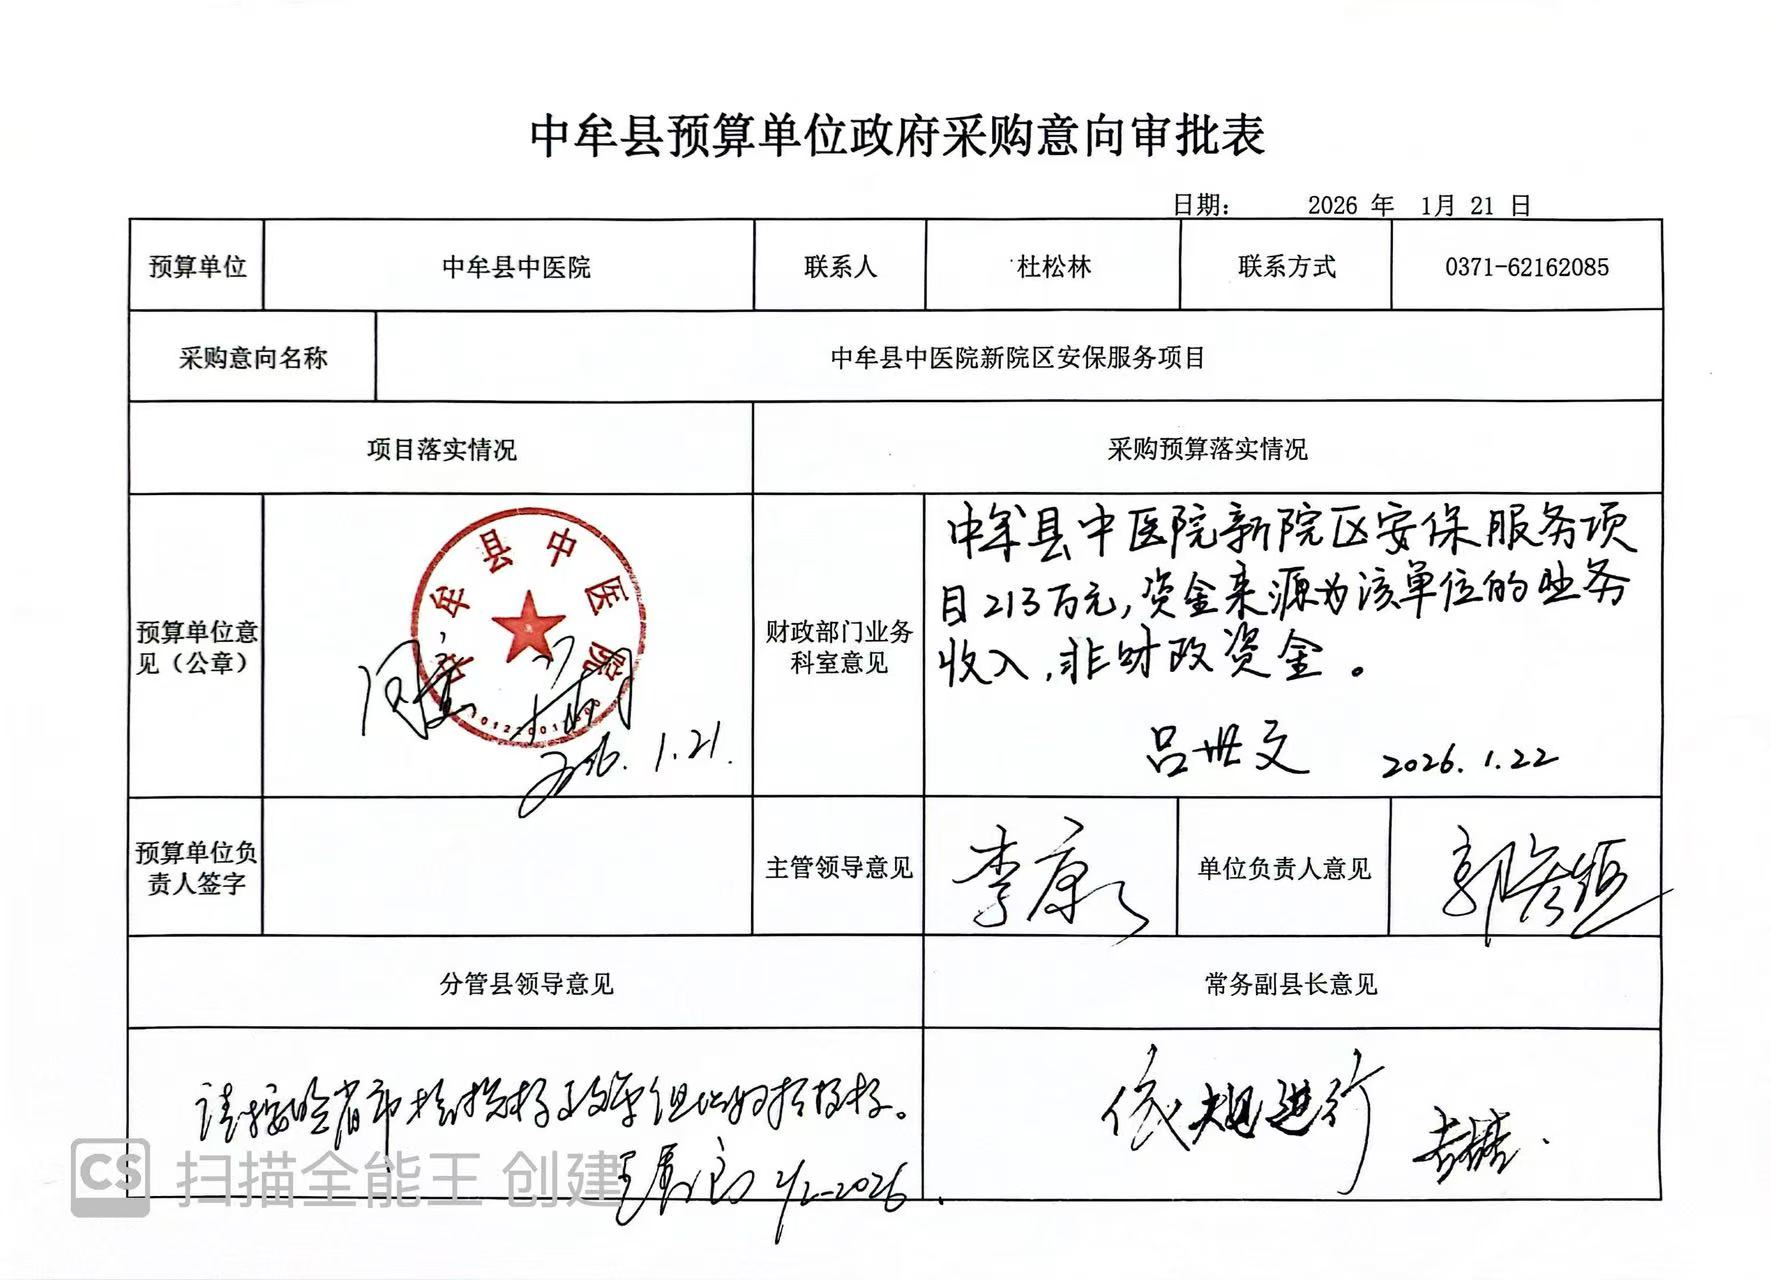 中牟县预算单位政府采购意向审批表
日期： 2026 年 1月 21 日
预算单位 中牟县中医院 联系人 杜松林 联系方式 0371-62162085
采购意向名称 中牟县中医院新院区安保服务项目
项目落实情况 采购预算落实情况
预算单位意见（公章）
中牟县中医院
同意
2026.1.21.
财政部门业务科室意见
中牟县中医院新院区安保服务项
目213万元,资金来源为该单位的业务
收入,非财政资金。
吕世文 2026.1.22
预算单位负责人签字
主管领导意见 李康 单位负责人意见
分管县领导意见 常务副县长意见
请按照省市 招投标。
2/2-2026
依规进行
CS 扫描全能王 创建